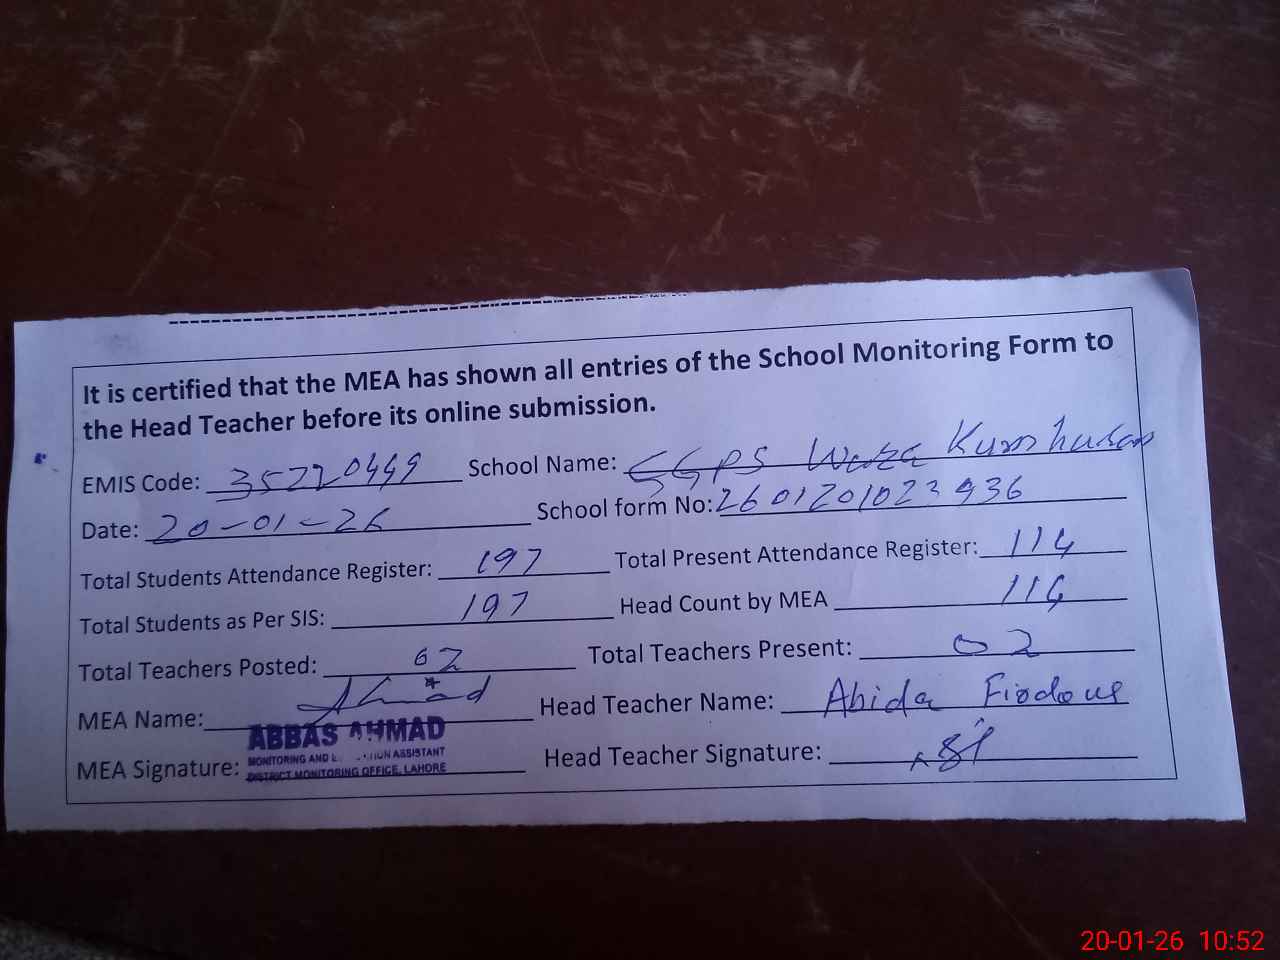 It is certified that the MEA has shown all entries of the School Monitoring Form to
the Head Teacher before its online submission.
EMIS Code: 35220449 School Name: GGPS Wara Kumharan
Date: 20-01-26 School form No: 2601201023936
Total Students Attendance Register: 197 Total Present Attendance Register: 114
Total Students as Per SIS: 197 Head Count by MEA 114
Total Teachers Posted: 02 Total Teachers Present: 02
MEA Name: Ahmad Head Teacher Name: Abida Firdous
ABBAS AHMAD
MONITORING AND ASSISTANT
MEA Signature: DISTRICT MONITORING OFFICE, LAHORE Head Teacher Signature:
20-01-26 10:52